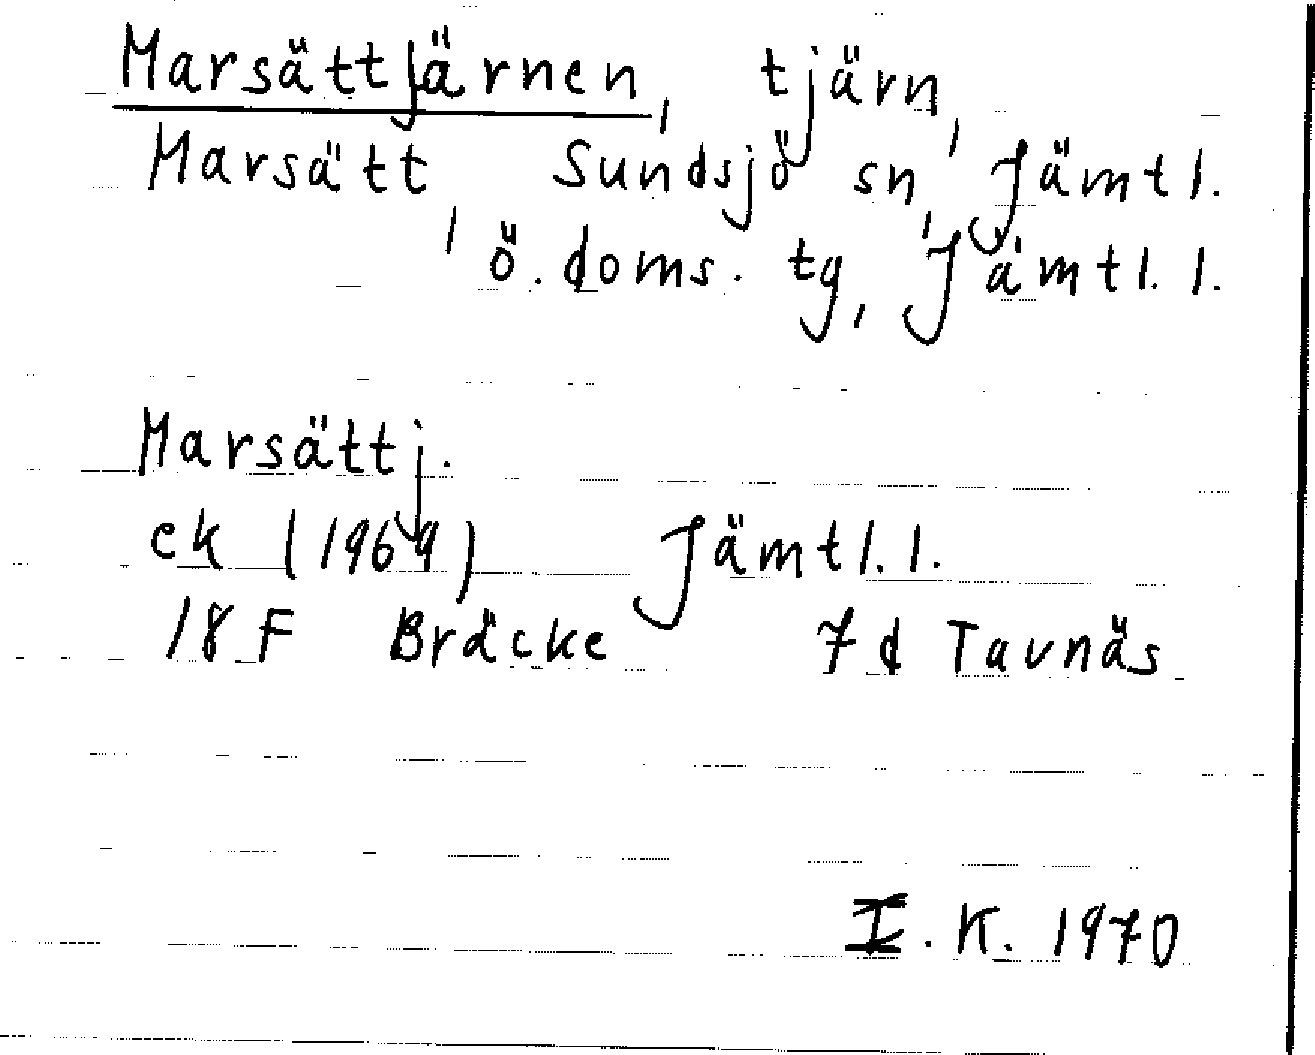 Marsättjärnen, tjärn,
Marsätt, Sundsjö sn, Jämtl.
ö. doms. tg, Jämtl. l.
Marsättj.
ek (1969) Jämtl. l.
18 F Bräcke 7d Tavnäs
I. K. 1970